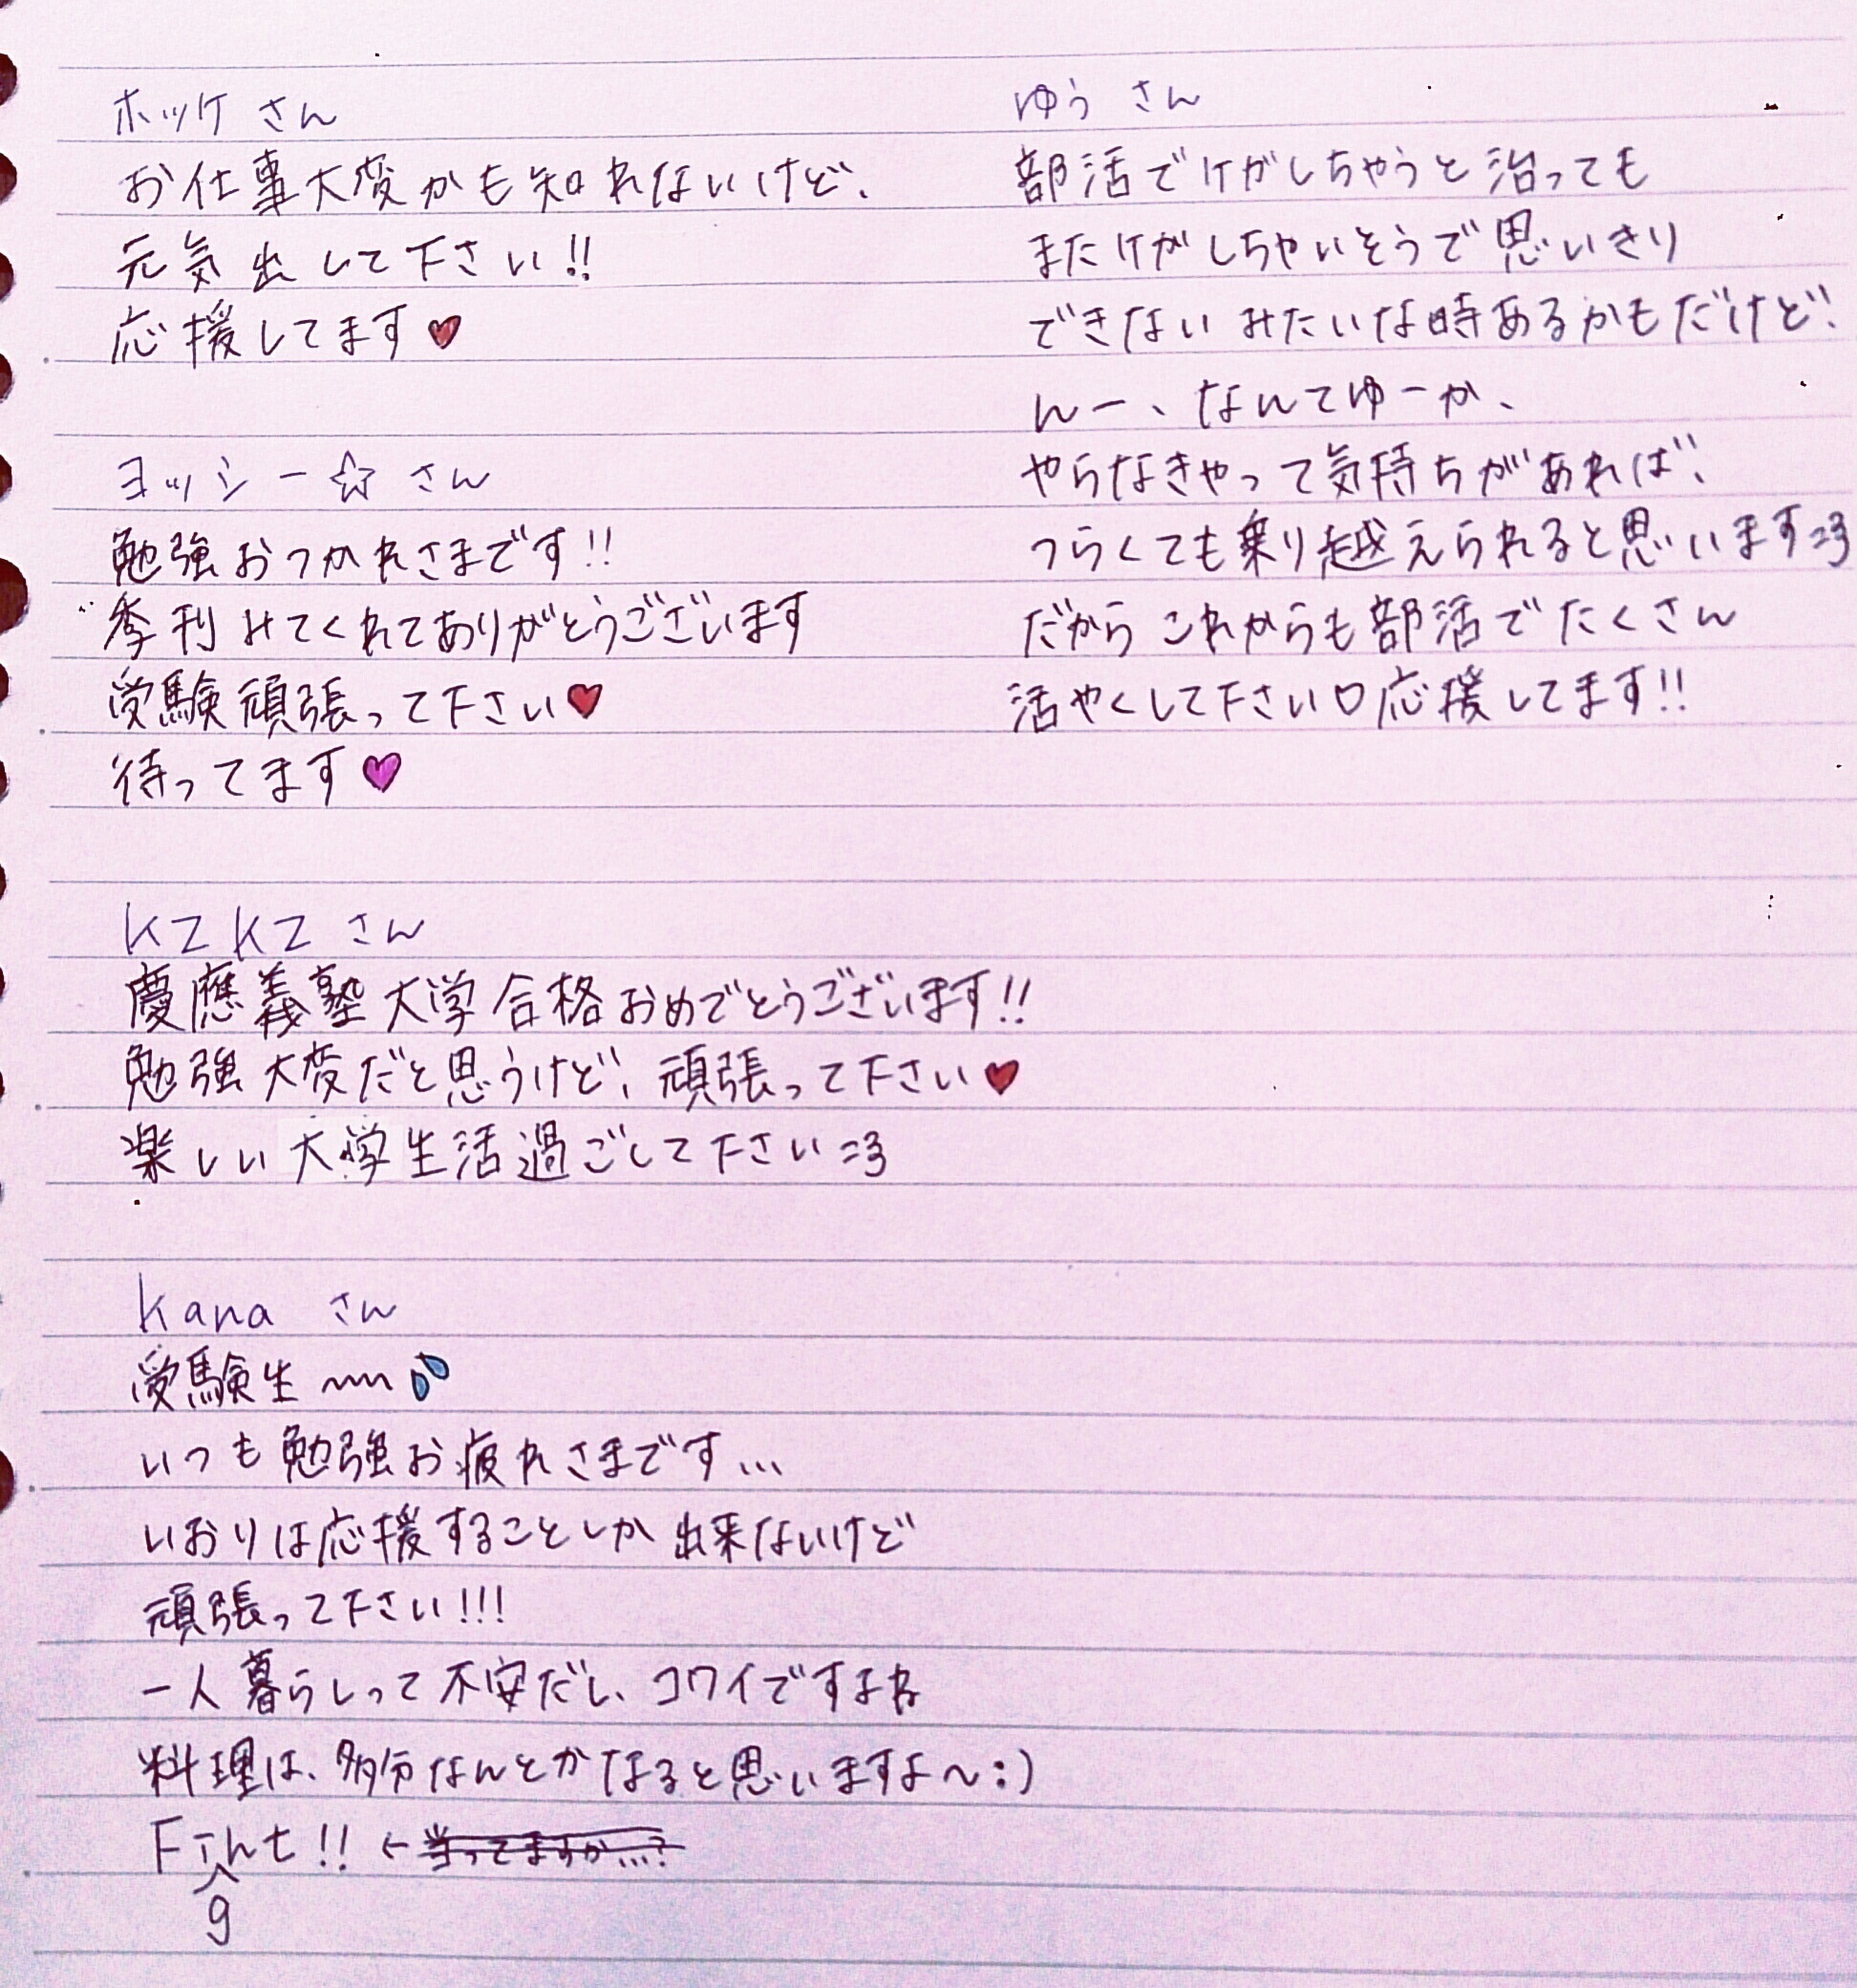 ホッケ さん
お仕事大変かも知れないけど、
元気出して下さい!!
応援してます♥
ヨッシー☆ さん
勉強おつかれさまです!!
季刊みてくれてありがとうございます
受験頑張って下さい♥
待ってます♥
KZKZ さん
慶應義塾大学合格おめでとうございます!!
勉強大変だと思うけど、頑張って下さい♥
楽しい大学生活過ごして下さい=3
Kana さん
受験生〜〜💦
いつも勉強お疲れさまです...
いおりは応援することしか出来ないけど
頑張って下さい!!!
一人暮らしって不安だし、コワイですよね
料理は、多分なんとかなると思いますよ〜:)
Fight!! ←当ってますか...?
ゆう さん
部活でケガしちゃうと治っても
またケガしちゃいそうで思いきり
できないみたいな時あるかもだけど、
んー、なんてゆーか、
やらなきゃって気持ちがあれば、
つらくても乗り越えられると思います=3
だからこれからも部活でたくさん
活やくして下さい♡応援してます!!